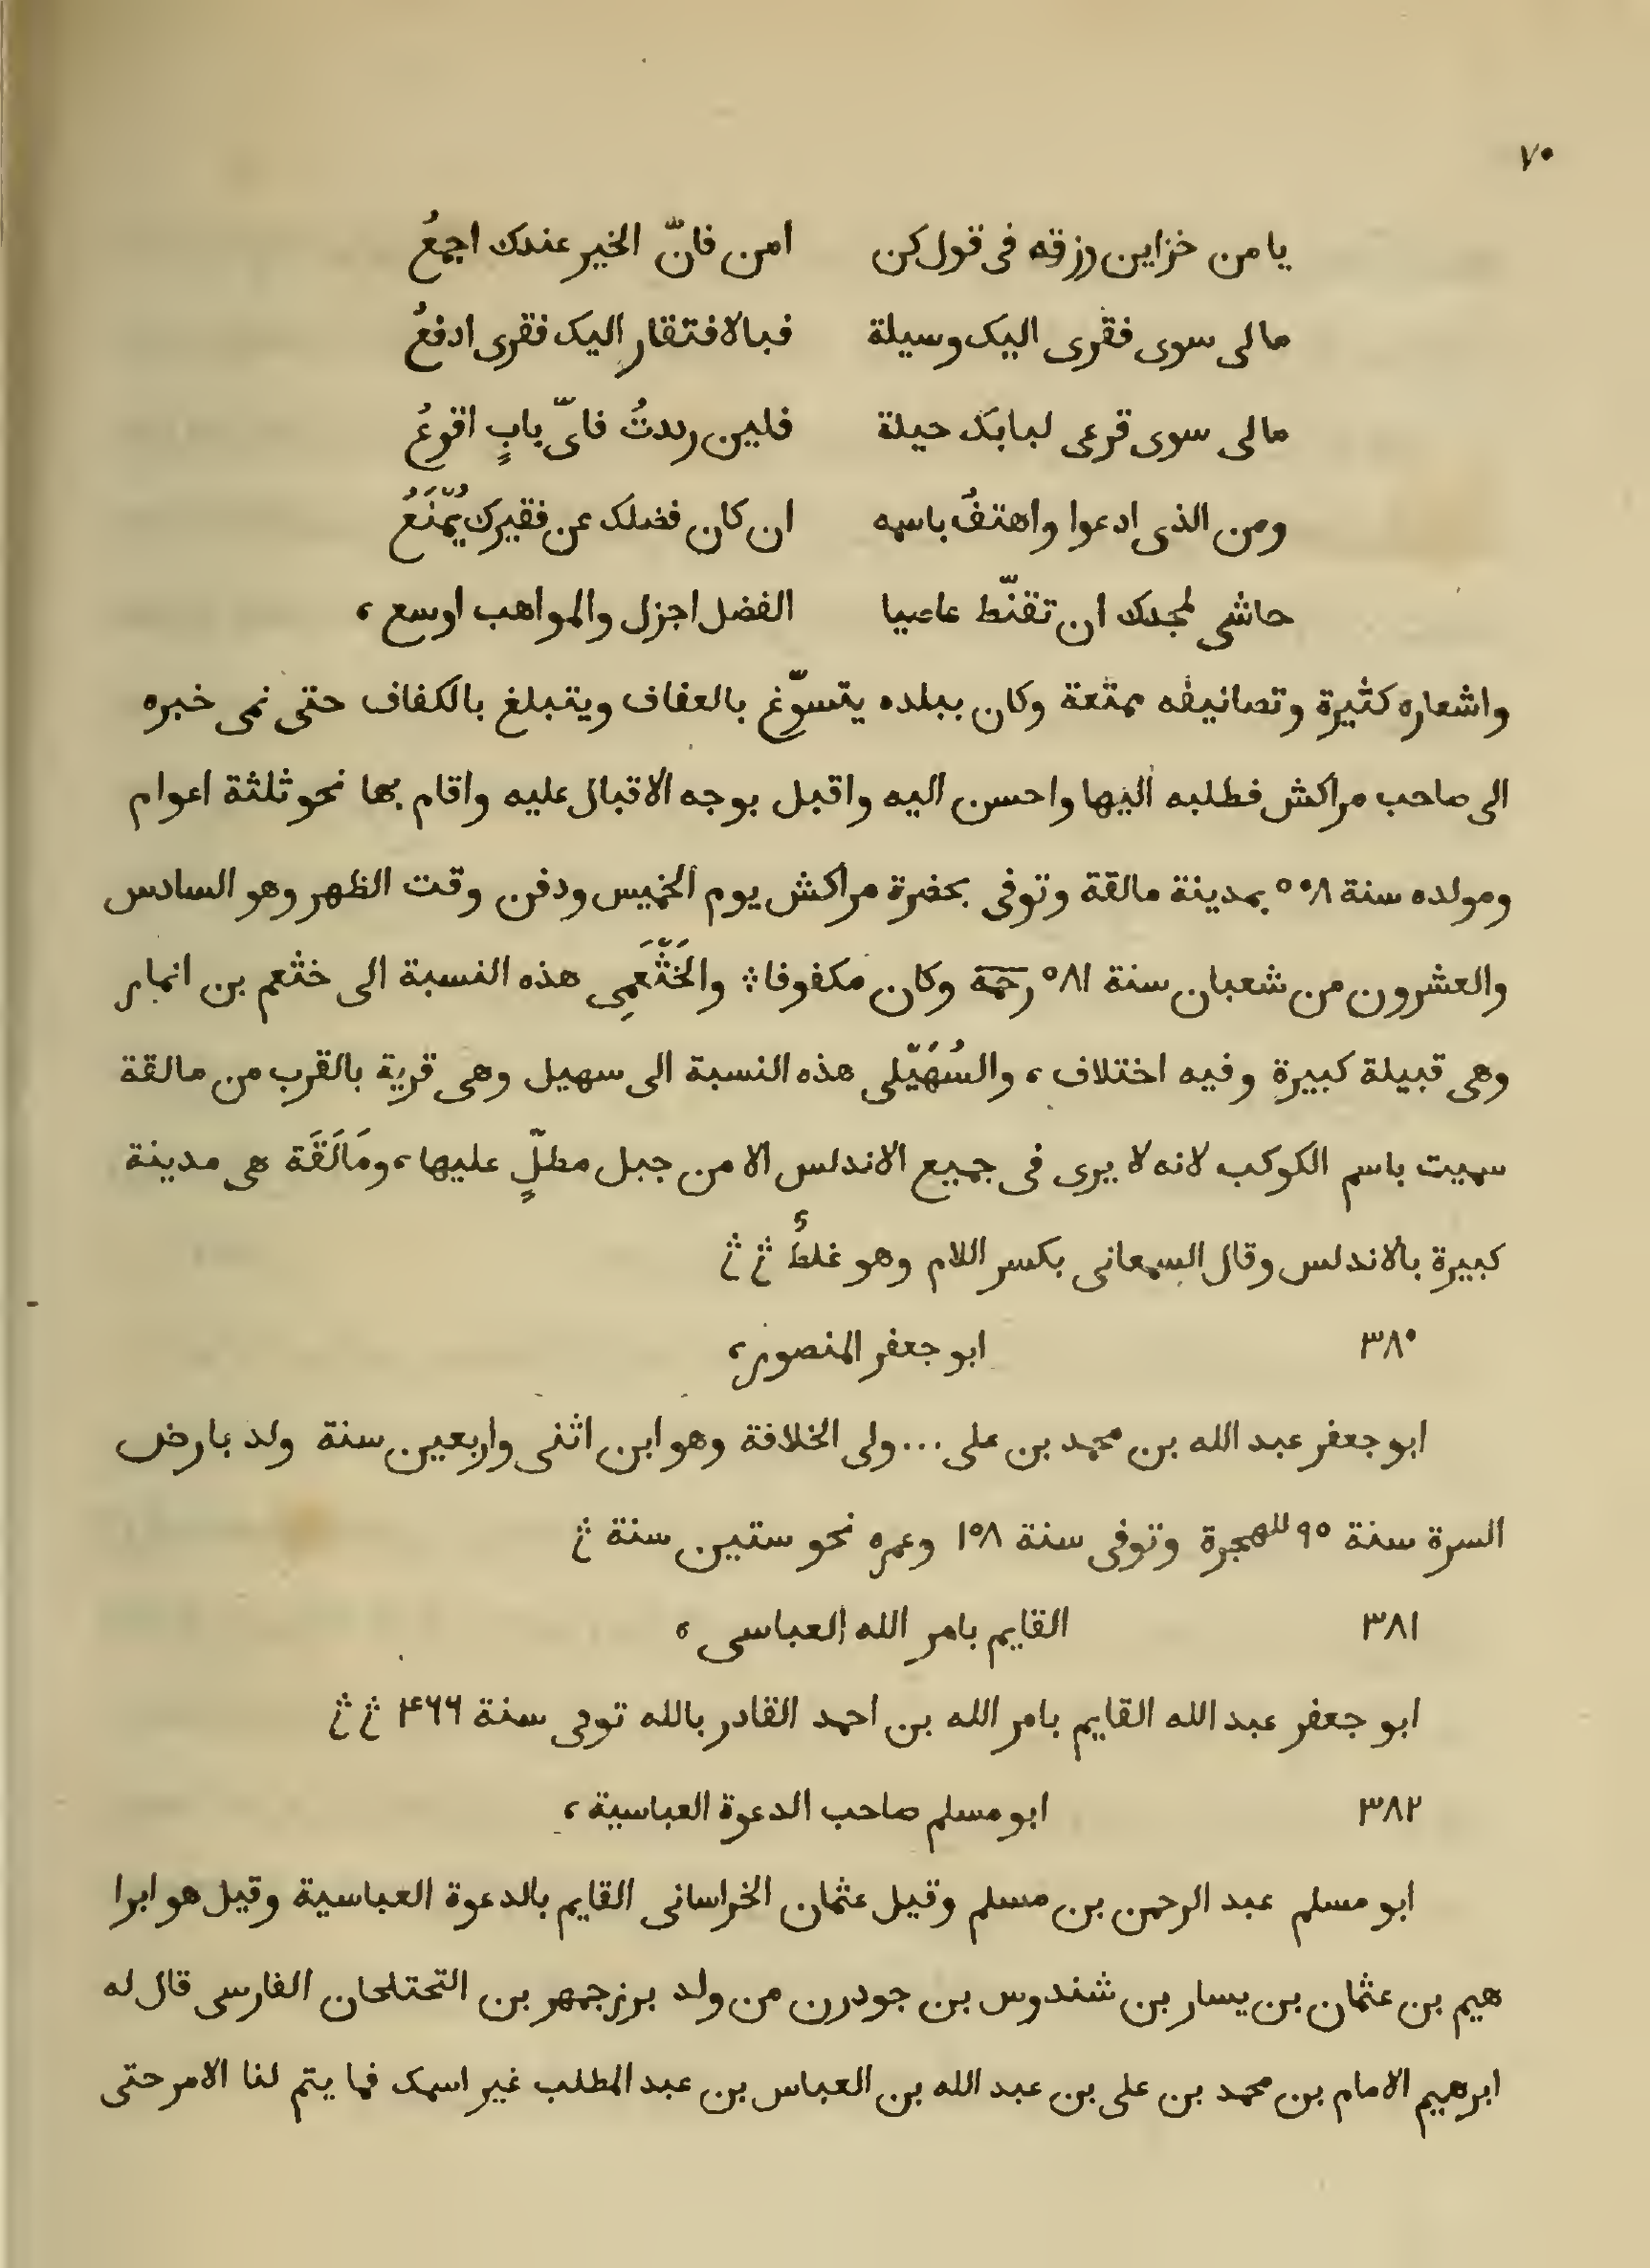 ٧٠
يا من خزاين رزقه فى قول كن امن فانّ الخير عندك اجمعُ
مالى سوى فقرى اليک وسيلة فبالافتقار اليک فقرى ادفعُ
مالى سوى قرعى لبابک حيلة فلين رددتُ فاىّ بابٍ اقرعُ
ومن الذى ادعوا واهتفُ باسمه ان كان فضلک عن فقيرك يُمْنَعُ
حاشى لمجدك ان تقنّط عاصيا الفضل اجزل والمواهب اوسع ،
واشعاره كثيرة وتصانيفه ممتعة وكان ببلده يتسوّغ بالعفاف ويتبلغ بالكفاف حتى نمى خبره
الى صاحب مراكش فطلبه اليها واحسن اليه واقبل بوجه الاقبال عليه واقام بها نحو ثلثة اعوام
ومولده سنة ٥٠٨ بمدينة مالقة وتوفى بحضرة مراكش يوم الخميس ودفن وقت الظهر وهو السادس
والعشرون من شعبان سنة ٥٨١ رحمة وكان مكفوفا ؞ والخَثْعَمِى هذه النسبة الى خثعم بن انمار
وهى قبيلة كبيرة وفيه اختلاف ، والسُهَيْلى هذه النسبة الى سهيل وهى قرية بالقرب من مالقة
سميت باسم الكوكب لانه لا يرى فى جميع الاندلس الا من جبل مطلّ عليها ، ومَالَقَة هى مدينة
كبيرة بالاندلس وقال السمعانى بكسر اللام وهو غلطٌ
٣٨٠ ابو جعفر المنصور ،
ابو جعفر عبد الله بن محمد بن على ... ولى الخلافة وهو ابن اثنى واربعين سنة ولد بارض
السرة سنة ٩٥ للهجرة وتوفى سنة ١٥٨ وعمره نحو ستين سنة
٣٨١ القايم بامر الله العباسى ،
ابو جعفر عبد الله القايم بامر الله بن احمد القادر بالله توفى سنة ۴۶۶
٣٨٢ ابو مسلم صاحب الدعوة العباسية ،
ابو مسلم عبد الرحمن بن مسلم وقيل عثمان الخراسانى القايم بالدعوة العباسية وقيل هو ابرا
هيم بن عثمان بن يسار بن شندوس بن جودرن من ولد بزرجمهر بن التختلحان الفارسى قال له
ابرهيم الامام بن محمد بن على بن عبد الله بن العباس بن عبد المطلب غير اسمک فما يتم لنا الامر حتى